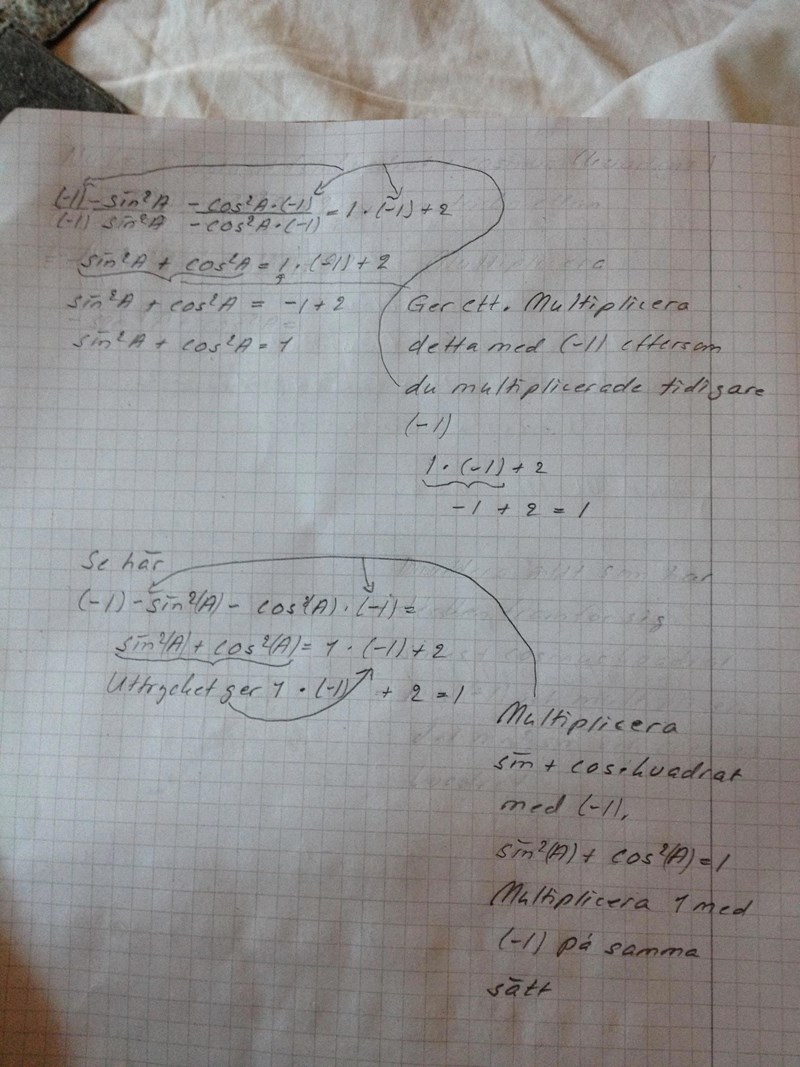 (-1) - sin²A - cos²A · (-1) = 1 · (-1) + 2
(-1) sin²A - cos²A · (-1)
sin²A + cos²A = 1 · (-1) + 2
sin²A + cos²A = -1 + 2
sin²A + cos²A = 1
Ger ett. Multiplicera
detta med (-1) eftersom
du multiplicerade tidigare
(-1)
1 · (-1) + 2
-1 + 2 = 1
Se här
(-1) - sin²(A) - cos²(A) · (-1) =
sin²(A) + cos²(A) = 1 · (-1) + 2
Uttrycket ger 1 · (-1) + 2 = 1
Multiplicera
sin + cos · kvadrat
med (-1),
sin²(A) + cos²(A) = 1
Multiplicera 1 med
(-1) på samma
sätt